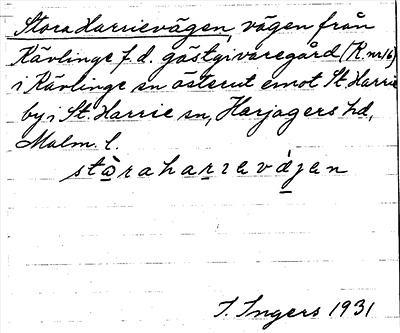 Stora Harrievägen, vägen från
Kävlinge f.d. gästgivaregård (R.nr 16)
i Kävlinge sn österut emot St. Harrie
by i St. Harrie sn, Harjagers hd,
Malm. l.
stòraharɪavájen
I. Ingers 1931